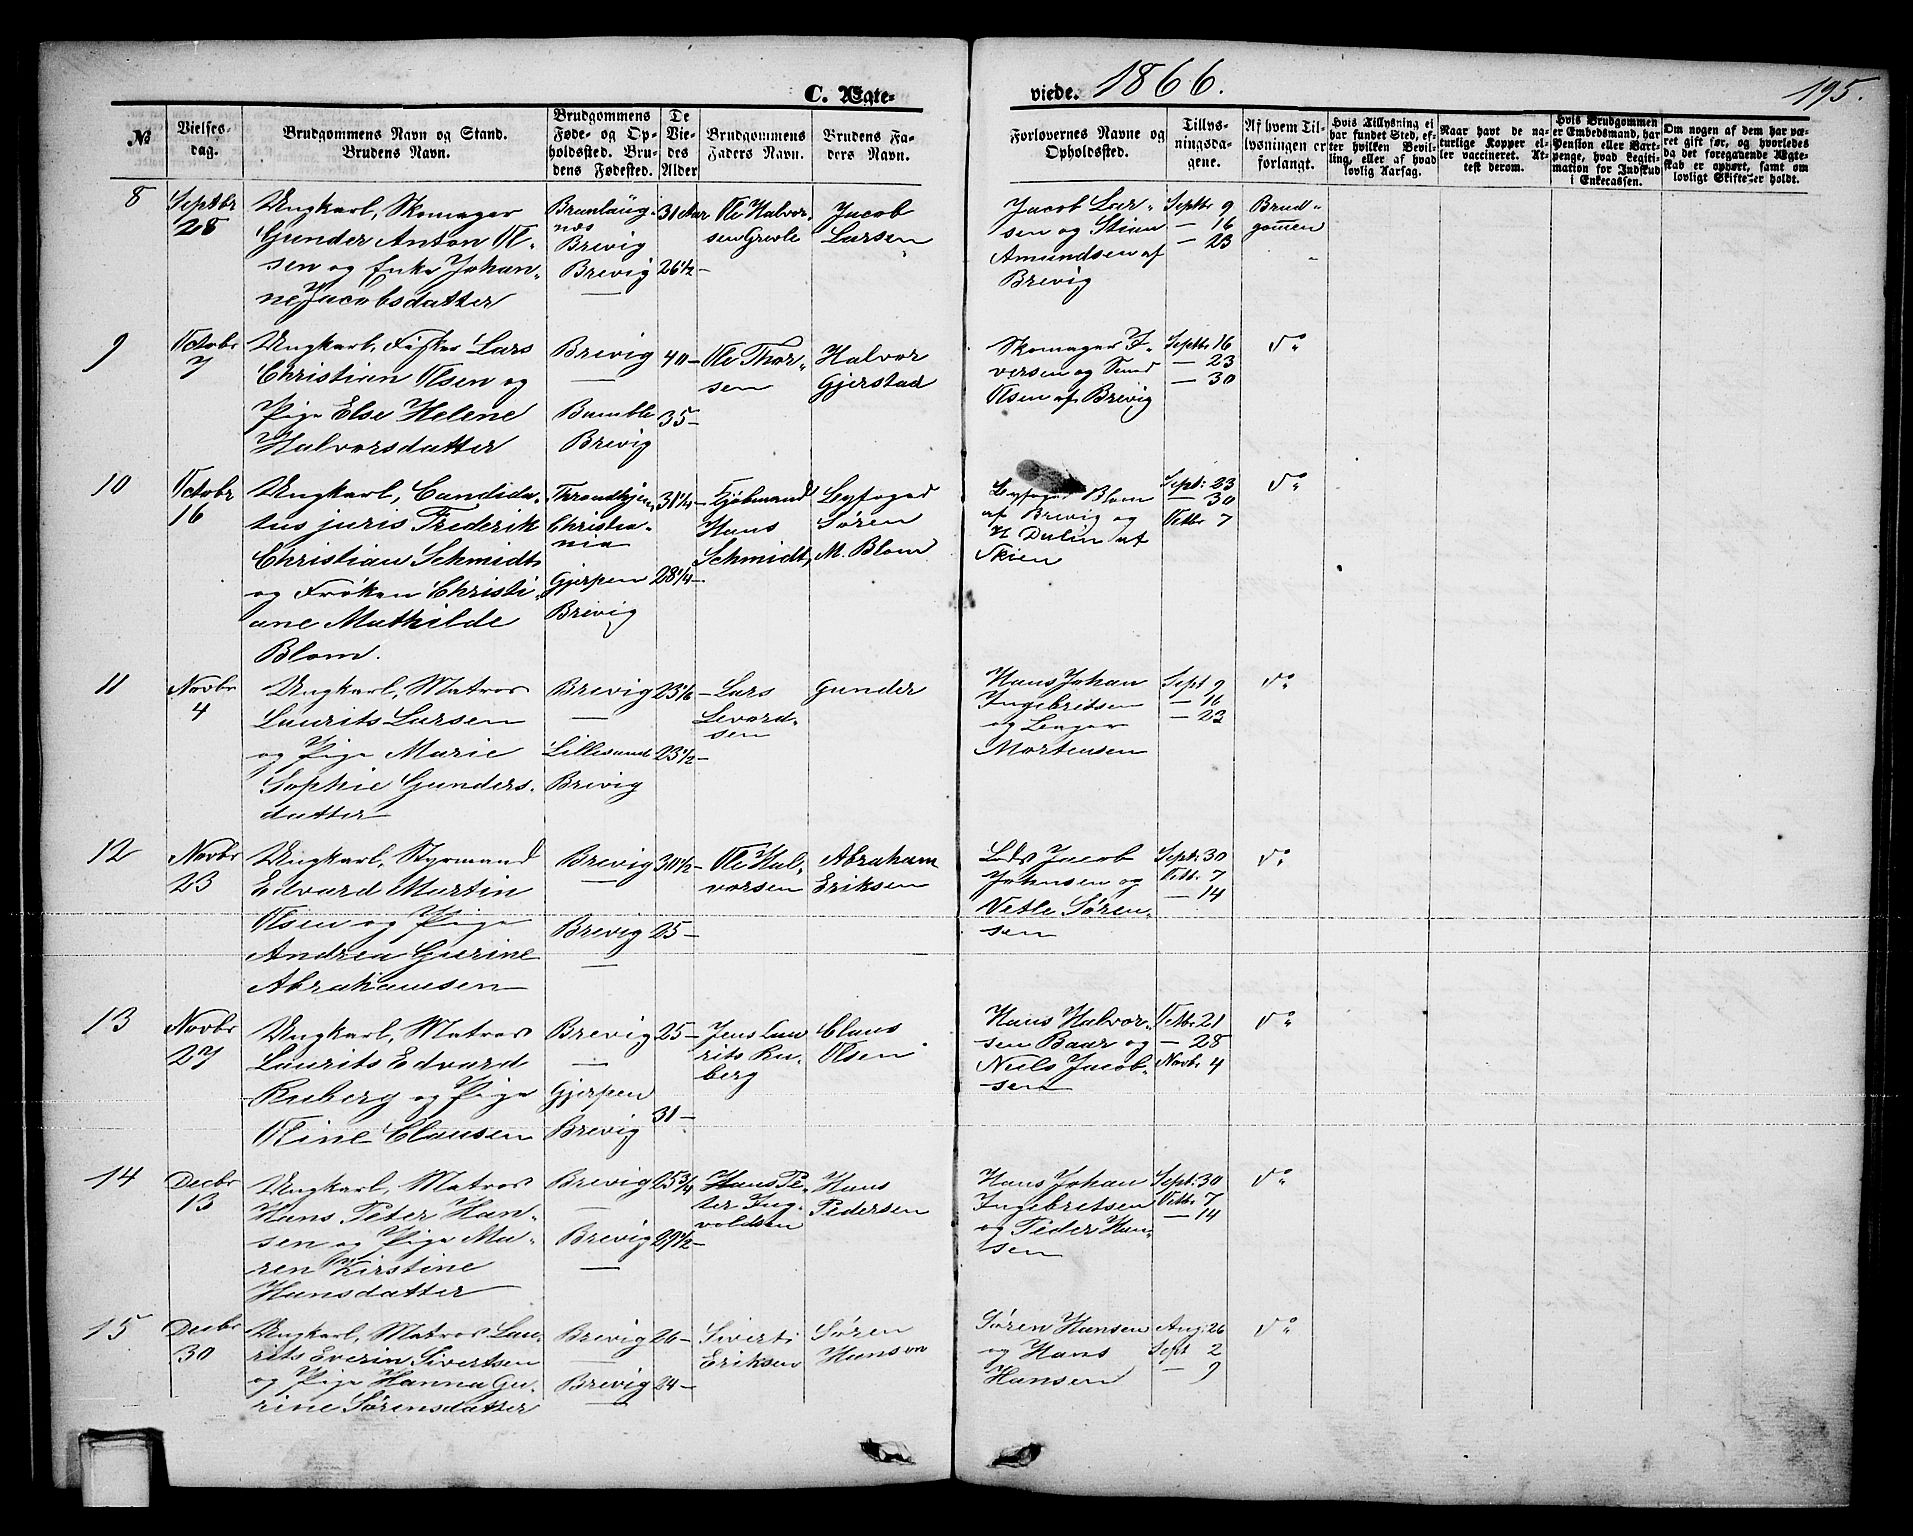 C. Ægte-
viede. 1866.
195.
№
Vielses-
dag.
Brudgommens Navn og Stand.
Brudens Navn.
Brudgommens
Føde- og Op-
holdssted. Bru-
dens Fødested.
De
Vie-
des
Alder
Brudgommens
Faders Navn.
Brudens Fa-
ders Navn.
Forlovernes Navne og
Opholdssted.
Tillys-
ningsda-
gene.
Af hvem Til-
lysningen er
forlangt.
Hvis Tillysning ei
har fundet Sted, ef-
ter hvilken Bevil-
ling, eller af hvad
lovlig Aarsag.
Naar havt de na-
turlige Kopper el-
ler vaccineret. At-
test derom.
Hvis Brudgommen
er Embedsmand, har
Pension eller Vart-
penge, hvad Legiti-
mation for Indskud
i Enkecassen.
Om nogen af dem har væ-
ret gift før, og hvorledes
da det foregaaende Ægte-
skab er ophørt, samt om
lovligt Skifte er holdt.
8
Septbr
28
Ungkarl, Skomager
Gunder Anton Ol-
sen og Enke Johan-
ne Jacobsdatter
Brunlaug-
næs
Brevig
Brevig
31 Aar
26 1/2 -
Ole Halvor-
sen Grevle
Jacob
Larsen
Jacob Lar-
sen og Stian
Amundsen af
Brevig
Septbr 9
- 16
- 23
Brud-
gommen
9
Octobr
7
Ungkarl, Fisker Lars
Christian Olsen og
Pige Else Helene
Halvorsdatter
Brevig
Bamble
Brevig
40 -
35 -
Ole Thor-
sen
Halvor
Gjerstad
Skomager I-
versen og
Olsen af Brevig
Septbr 16
- 23
- 30
do
10
Octobr
16
Ungkarl, Candida-
tus juris Frederik
Christian Schmidt
og Frøken Christi-
ane Mathilde
Blom.
Throndhjem,
Christia-
nia
Gjerpen
Brevig
31 1/4 -
28 1/4 -
Kjøbmand
Hans
Schmidt,
Byfoged
Søren
M. Blom
Byfoged Blom
af Brevig og
H Dulin af
Skien
Sept: 23
- 30
Octbr 7
do
11
Novbr
4
Ungkarl, Matros
Laurits Larsen
og Pige Marie
Sophie Gunders-
datter
Brevig
Lillesand
Brevig
23 1/6 -
23 1/2 -
Lars
Levord-
sen
Gunder
Hans Johan
Ingebretsen
og
Mortensen
Sept 9
- 16
- 23
do
12
Novbr
23
Ungkarl, Styrmand
Edvard Martin
Olsen og Pige
Andrea Gurine
Abrahamsen
Brevig
Brevig
30 1/2 -
25 -
Ole Hal-
vorsen
Abraham
Eriksen
Lds Jacob
Johnsen og
Vetle Søren-
sen
Sept: 30
Octb. 7
- 14
do
13
Novbr
27
Ungkarl, Matros
Laurits Edvard
Ruberg og Pige
Oline Clausen
Brevig
Gjerpen
Brevig
25 -
31 -
Jens Lau-
rits Ru-
berg
Claus
Olsen
Hans Halvor-
sen Baar og
Niels Jacob-
sen
Octbr 21
- 28
Novbr 4
do
14
Decbr
13
Ungkarl, Matros
Hans Peter Han-
sen og Pige Ma-
ren Kirstine
Hansdatter
Brevig
Brevig
25 3/4
29 1/2 -
Hans Pe-
ter Ing-
voldsen
Hans
Pedersen
Hans Johan
Ingebretsen
og Peder Han-
sen
Sept: 30
Octbr 7
- 14
do
15
Decbr
30
Ungkarl, Matros Lau-
rits Everin Sivertsen
og Pige Hanna Gu-
rine Sørensdatter
Brevig
Brevig
26 -
24 -
Sivert
Eriksen
Søren
Hansen
Søren Hansen
og Hans
Hansen
Aug: 26
Sept 2
- 9
do